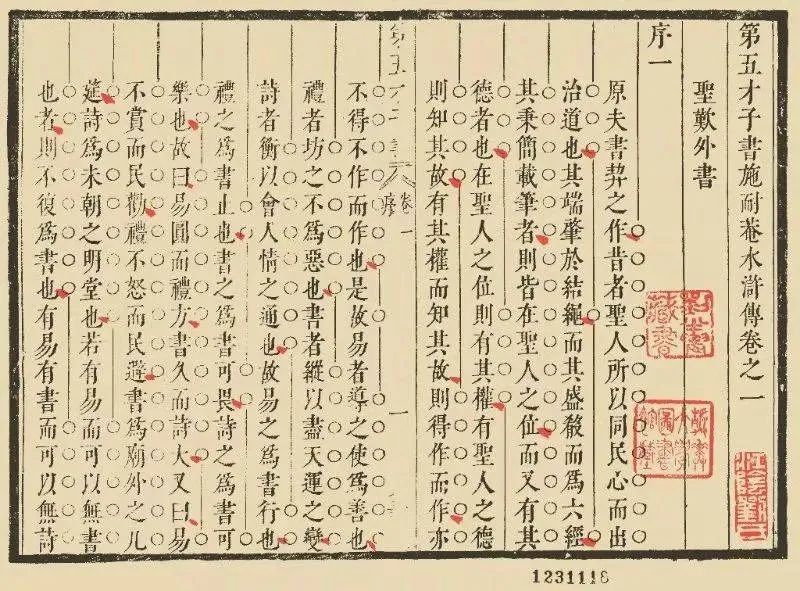 第五才子書施耐菴水滸傳卷之一
聖歎外書
序一
原夫書契之作昔者聖人所以同民心而出
治道也其端肇於結繩而其盛殽而為六經
其秉簡載筆者則皆在聖人之位而又有其
德者也在聖人之位則有其權有聖人之德
則知其故有其權而知其故則得作而作亦
第五才子書
卷一
序
一
不得不作而作也是故易者導之使為善也
禮者坊之不為惡也書者縱以盡天運之變
詩者衡以會人情之通也故易之為書行也
禮之為書止也書之為書可畏詩之為書可
樂也故曰易圓而禮方書久而詩大又曰易
不賞而民勸禮不怒而民避書為廟外之几
筵詩為未朝之明堂也若有易而可以無書
也者則不復為書也有易有書而可以無詩
1231118